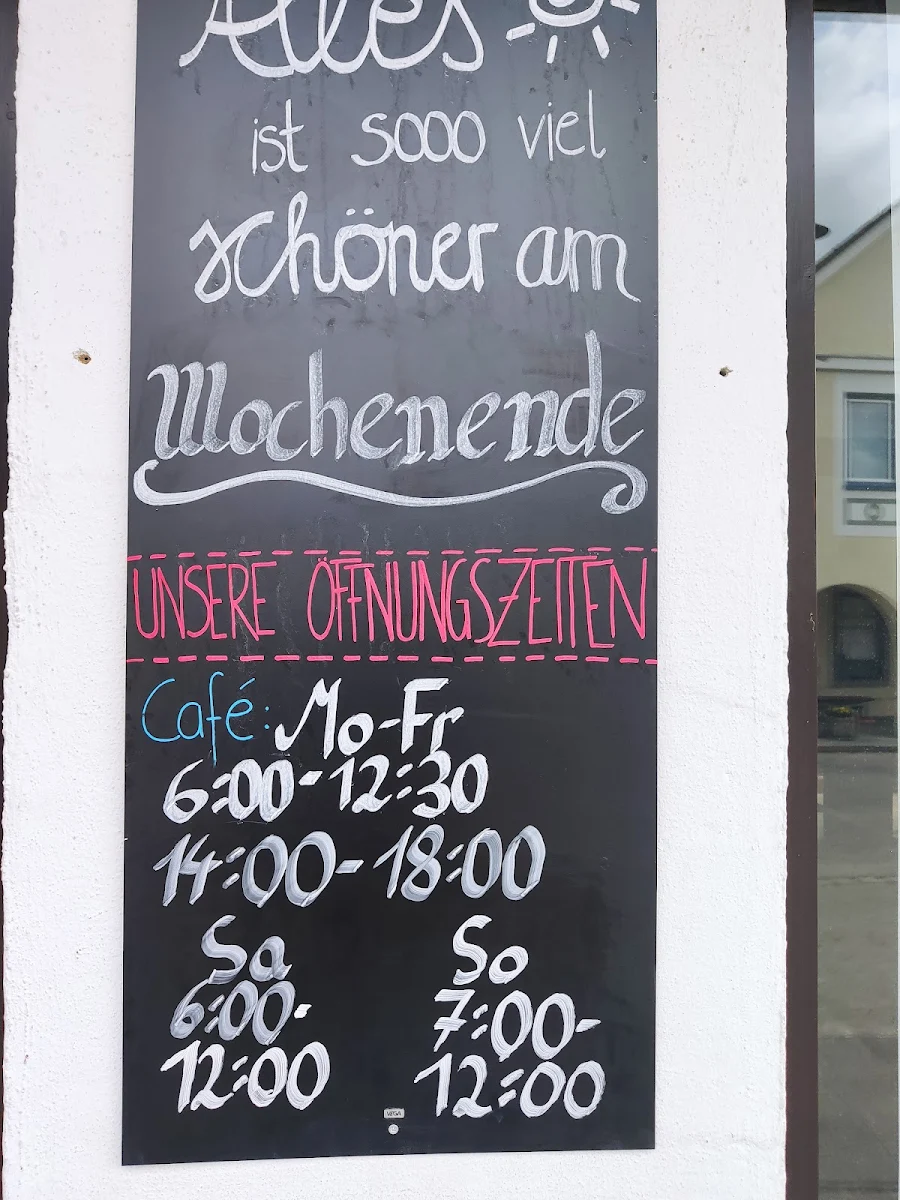 Alles
ist sooo viel
schöner am
Wochenende
UNSERE ÖFFNUNGSZEITEN
Café: Mo-Fr
6:00-12:30
14:00-18:00
Sa
6:00-
12:00
So
7:00-
12:00
VEGA